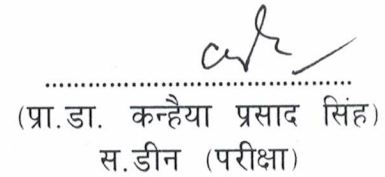 ....................................................
(प्रा.डा. कन्हैया प्रसाद सिंह)
स.डीन (परीक्षा)